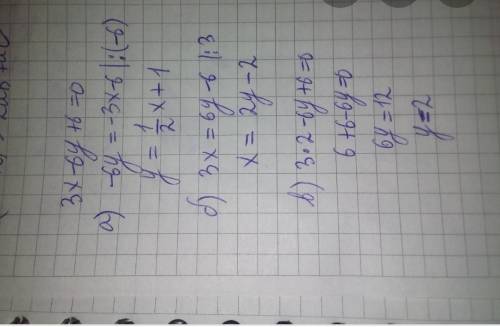 3x-6y+6=0
а) -6y = -3x-6 |:(-6)
y = 1/2 x + 1
б) 3x = 6y-6 |:3
x = 2y-2
в) 3·2-6y+6=0
6+6-6y=0
6y=12
y=2